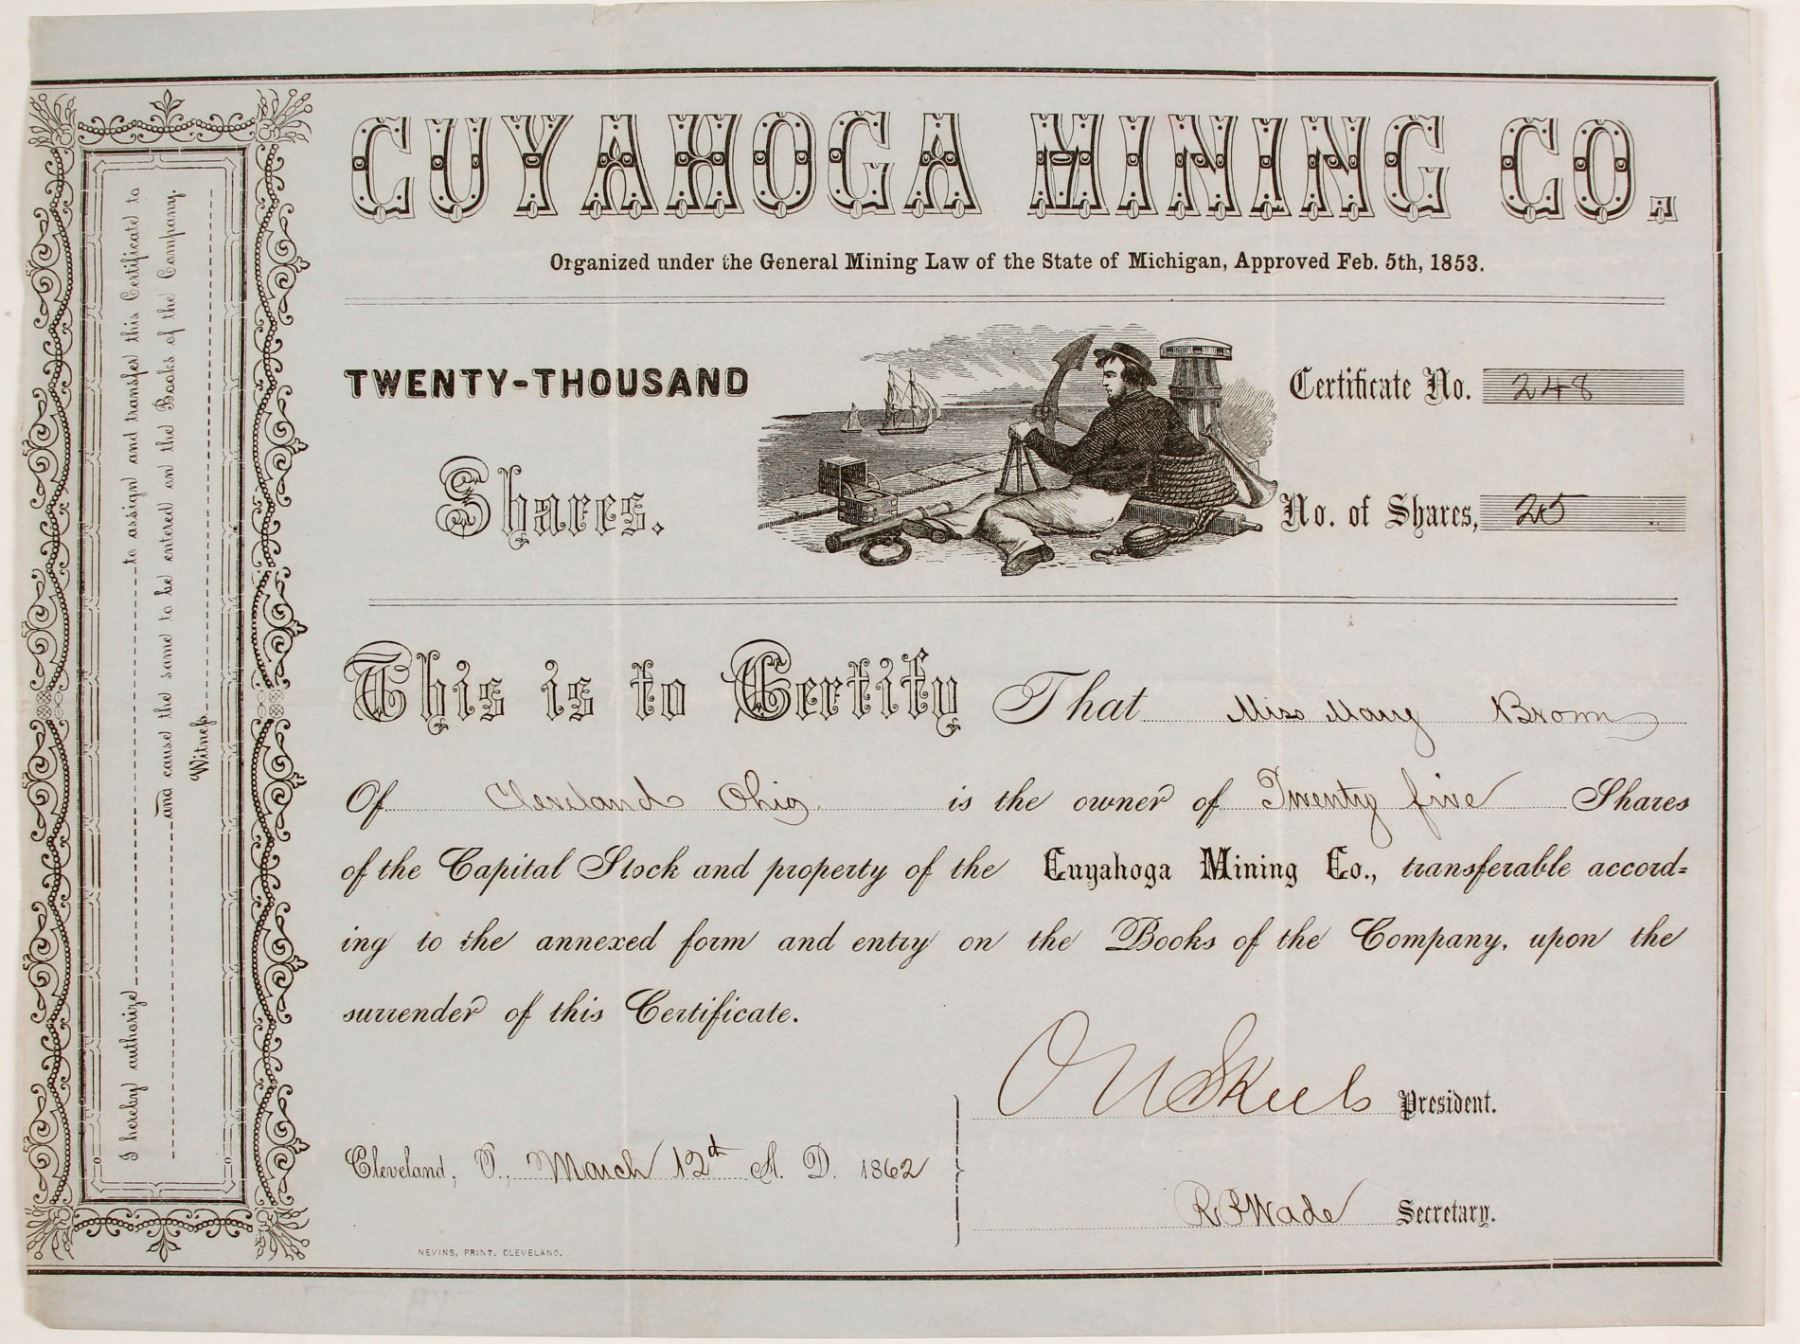 CUYAHOGA MINING CO.
Organized under the General Mining Law of the State of Michigan, Approved Feb. 5th, 1853.
TWENTY-THOUSAND
Shares.
Certificate No. 248
No. of Shares, 25
This is to Certify That Miss Mary Brown
Of Cleveland Ohio is the owner of Twenty five Shares
of the Capital Stock and property of the Cuyahoga Mining Co., transferable accord=
ing to the annexed form and entry on the Books of the Company, upon the
surrender of this Certificate.
President.
Cleveland, O., March 12th A. D. 1862
R P Wade Secretary.
NEVINS, PRINT. CLEVELAND.
I hereby authorize to assign and transfer this Certificate to
and cause the same to be entered on the Books of the Company.
Witness